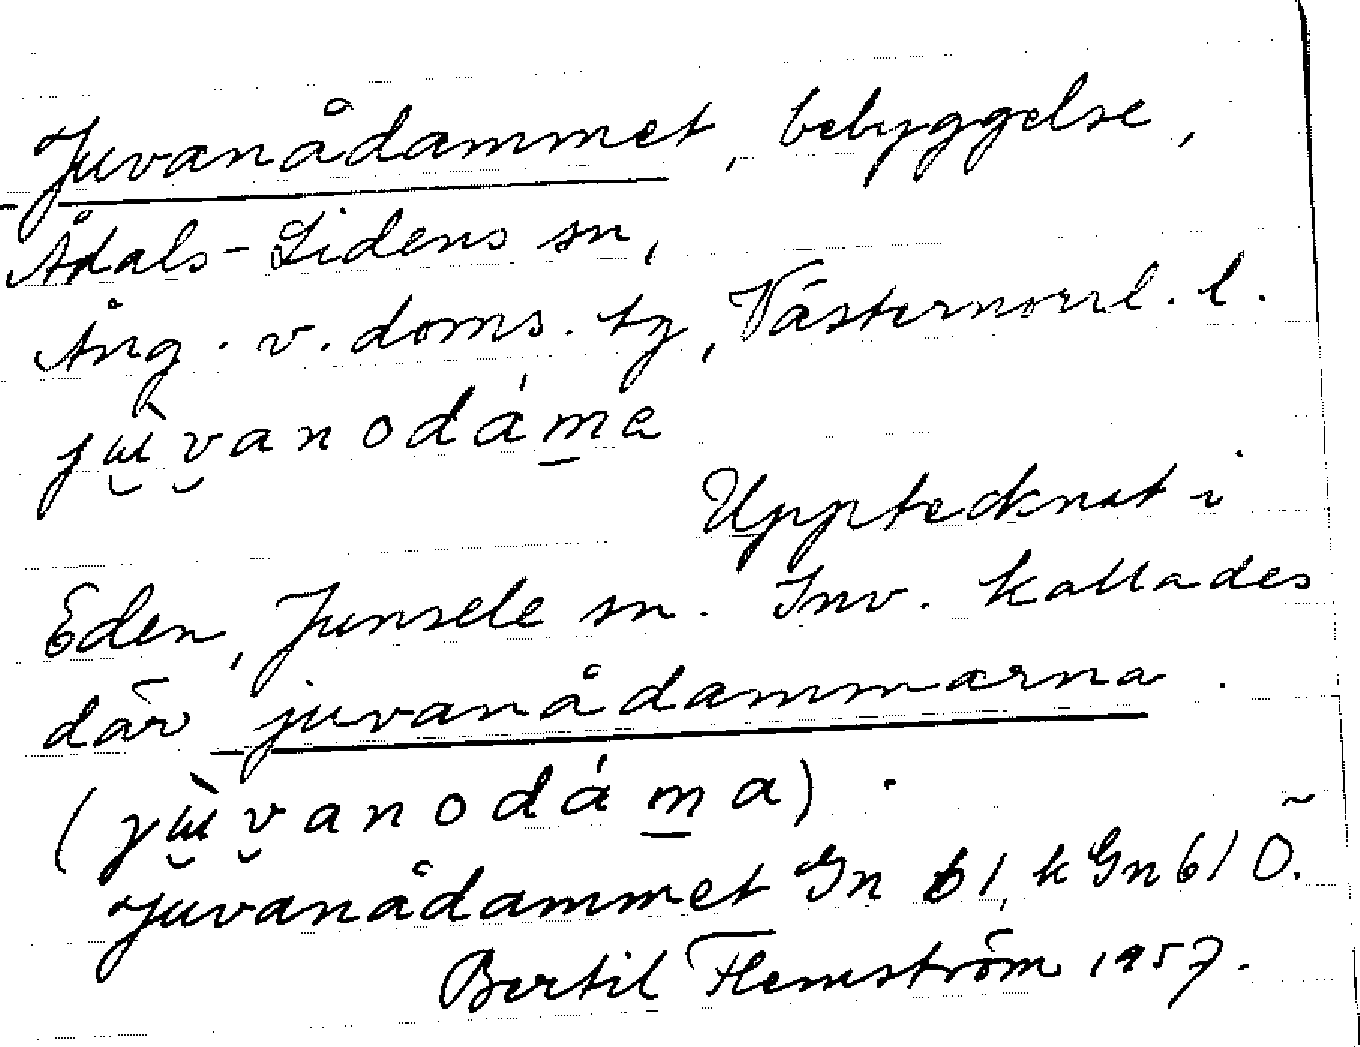 Juvanådammet, bebyggelse,
Ådals-Lidens sn,
Ång. v. doms. tg, Västernorrl. l.
jɯ̀vanodáma
Upptecknat i
Eden, Junsele sn. Inv. kallades
där juvanådammarna.
(jɯ̀vanodáma).
Juvanådammet Gn 61, kGn 61 Ö.
Bertil Flemström 1957.